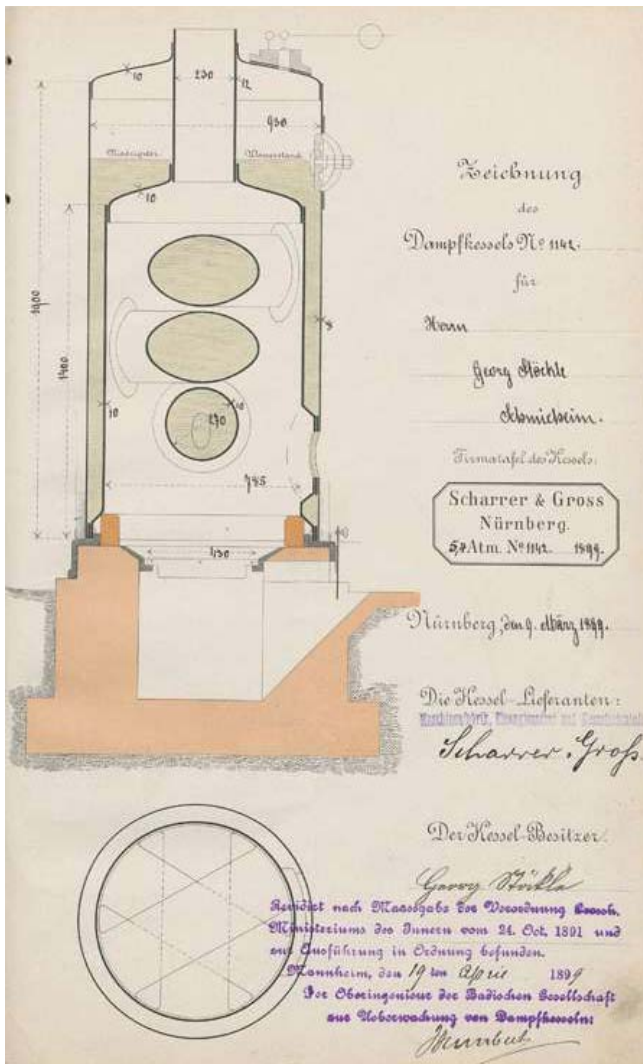 10
230
12
930
Niedrigster
Wasserstand
10
1900
1400
8
10
10
270
785
Zeichnung
des
Dampfkessels No 1142.
für
Herrn
Georg Stöckle
Schmieheim.
Firmatafel des Kessels:
Scharrer & Gross
Nürnberg.
Atm. No 1142. 1899.
Nürnberg, den 9. März 1899.
Die Kessel-Lieferanten:
Maschinenfabrik, Eisengiesserei und Kesselschmiede
Scharrer & Groß
Der Kessel-Besitzer.
Georg Stöckle
Revidirt nach Maassgabe der Verordnung Grossh.
Ministeriums des Innern vom 24. Oct. 1891 und
zur Ausführung in Ordnung befunden.
Mannheim, den 19ten April 1899
Der Oberingenieur der Badischen Gesellschaft
zur Ueberwachung von Dampfkesseln: